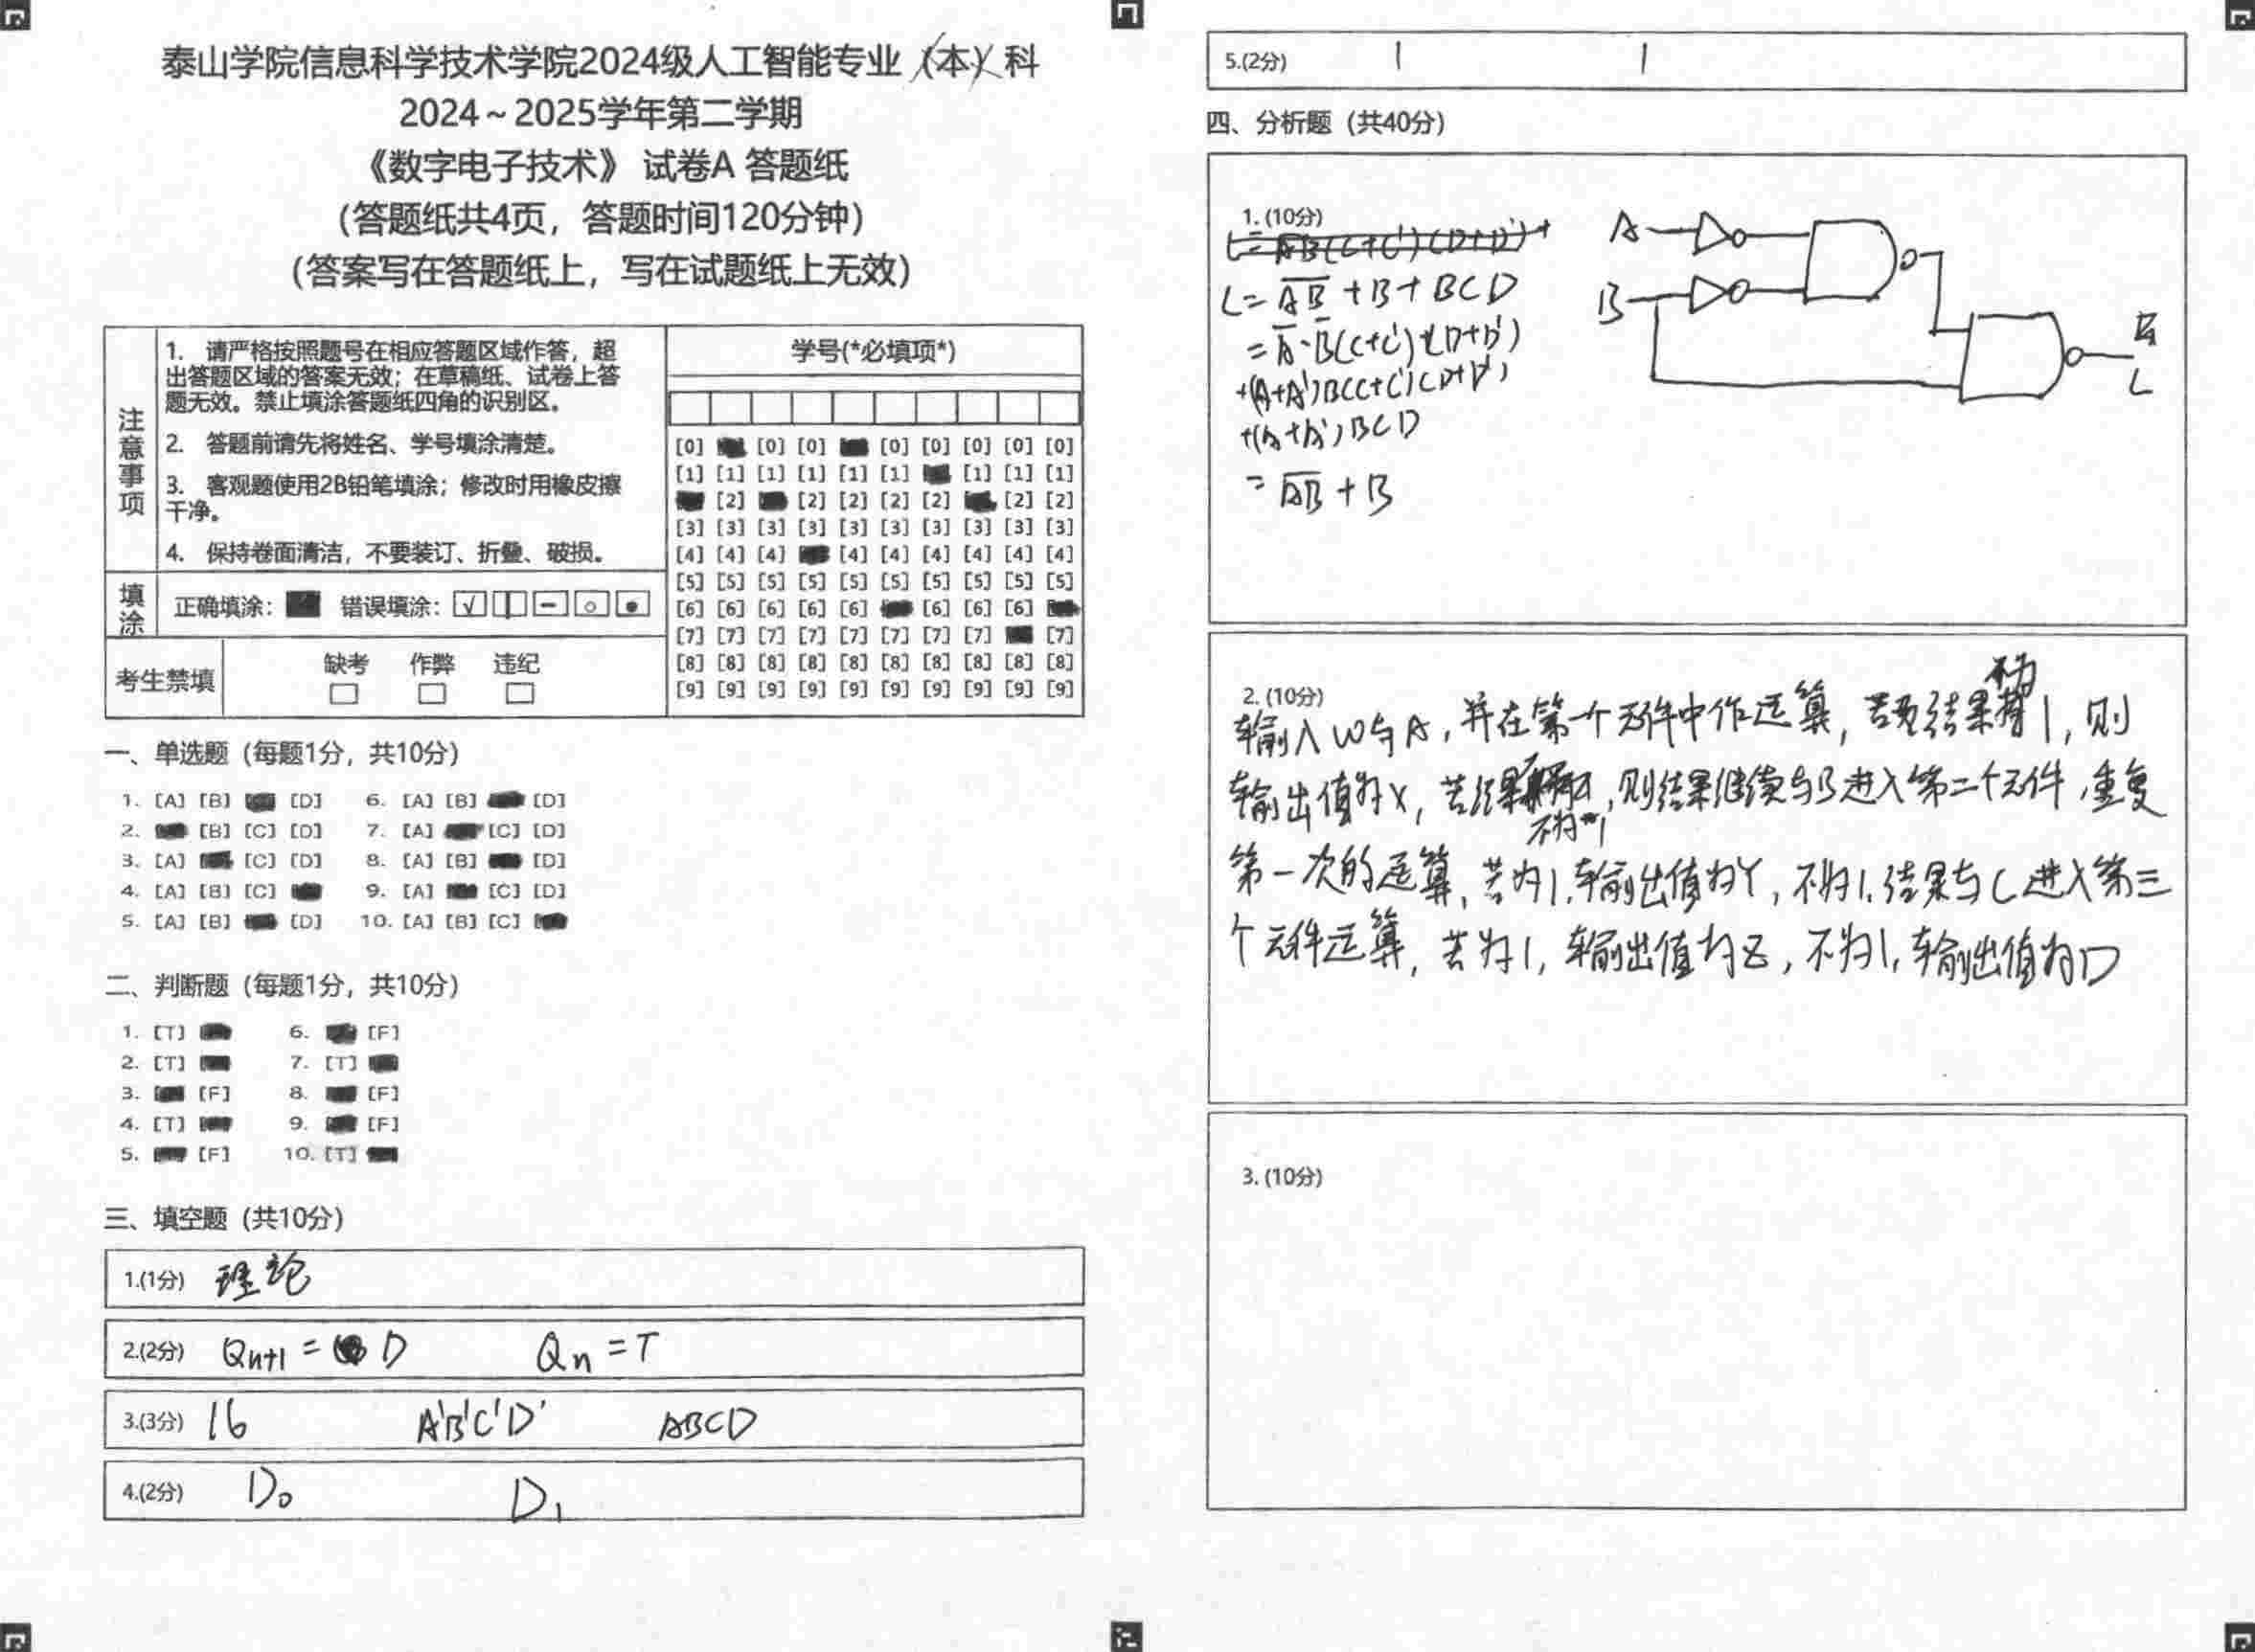 泰山学院信息科学技术学院2024级人工智能专业（本）科
2024～2025学年第二学期
《数字电子技术》 试卷A 答题纸
（答题纸共4页，答题时间120分钟）
（答案写在答题纸上，写在试题纸上无效）
注意事项
1. 请严格按照题号在相应答题区域作答，超
出答题区域的答案无效；在草稿纸、试卷上答
题无效。禁止填涂答题纸四角的识别区。
2. 答题前请先将姓名、学号填涂清楚。
3. 客观题使用2B铅笔填涂；修改时用橡皮擦
干净。
4. 保持卷面清洁，不要装订、折叠、破损。
填涂 正确填涂： 错误填涂：
考生禁填 缺考 作弊 违纪
学号(*必填项*)
[0] [0] [0] [0] [0] [0] [0] [0]
[1] [1] [1] [1] [1] [1] [1] [1] [1]
[2] [2] [2] [2] [2] [2] [2]
[3] [3] [3] [3] [3] [3] [3] [3] [3] [3]
[4] [4] [4] [4] [4] [4] [4] [4] [4]
[5] [5] [5] [5] [5] [5] [5] [5] [5] [5]
[6] [6] [6] [6] [6] [6] [6] [6]
[7] [7] [7] [7] [7] [7] [7] [7] [7]
[8] [8] [8] [8] [8] [8] [8] [8] [8] [8]
[9] [9] [9] [9] [9] [9] [9] [9] [9] [9]
一、单选题（每题1分，共10分）
1. [A] [B] [D] 6. [A] [B] [D]
2. [B] [C] [D] 7. [A] [C] [D]
3. [A] [C] [D] 8. [A] [B] [D]
4. [A] [B] [C] 9. [A] [C] [D]
5. [A] [B] [D] 10. [A] [B] [C]
二、判断题（每题1分，共10分）
1. [T] 6. [F]
2. [T] 7. [T]
3. [F] 8. [F]
4. [T] 9. [F]
5. [F] 10. [T]
三、填空题（共10分）
1.(1分) 理论
2.(2分) Qn+1 = D Qn = T
3.(3分) 16 A'B'C'D' ABCD
4.(2分) D₀ D₁
5.(2分) 1 1
四、分析题（共40分）
1. (10分)
L = A̅B̅ + B + BCD
= A̅·B̅(C+C')(D+D')
+(A+A')B(C+C')(D+D')
+(A+A')BCD
= A̅B̅ + B
A
B
L
2. (10分)
输入W与A，并在第一个元件中作运算，若结果为1，则
输出值为X，若结果不为1，则结果继续与B进入第二个元件，重复
第一次的运算，若为1，输出值为Y，不为1，结果与C进入第三
个元件运算，若为1，输出值为Z，不为1，输出值为D
3. (10分)